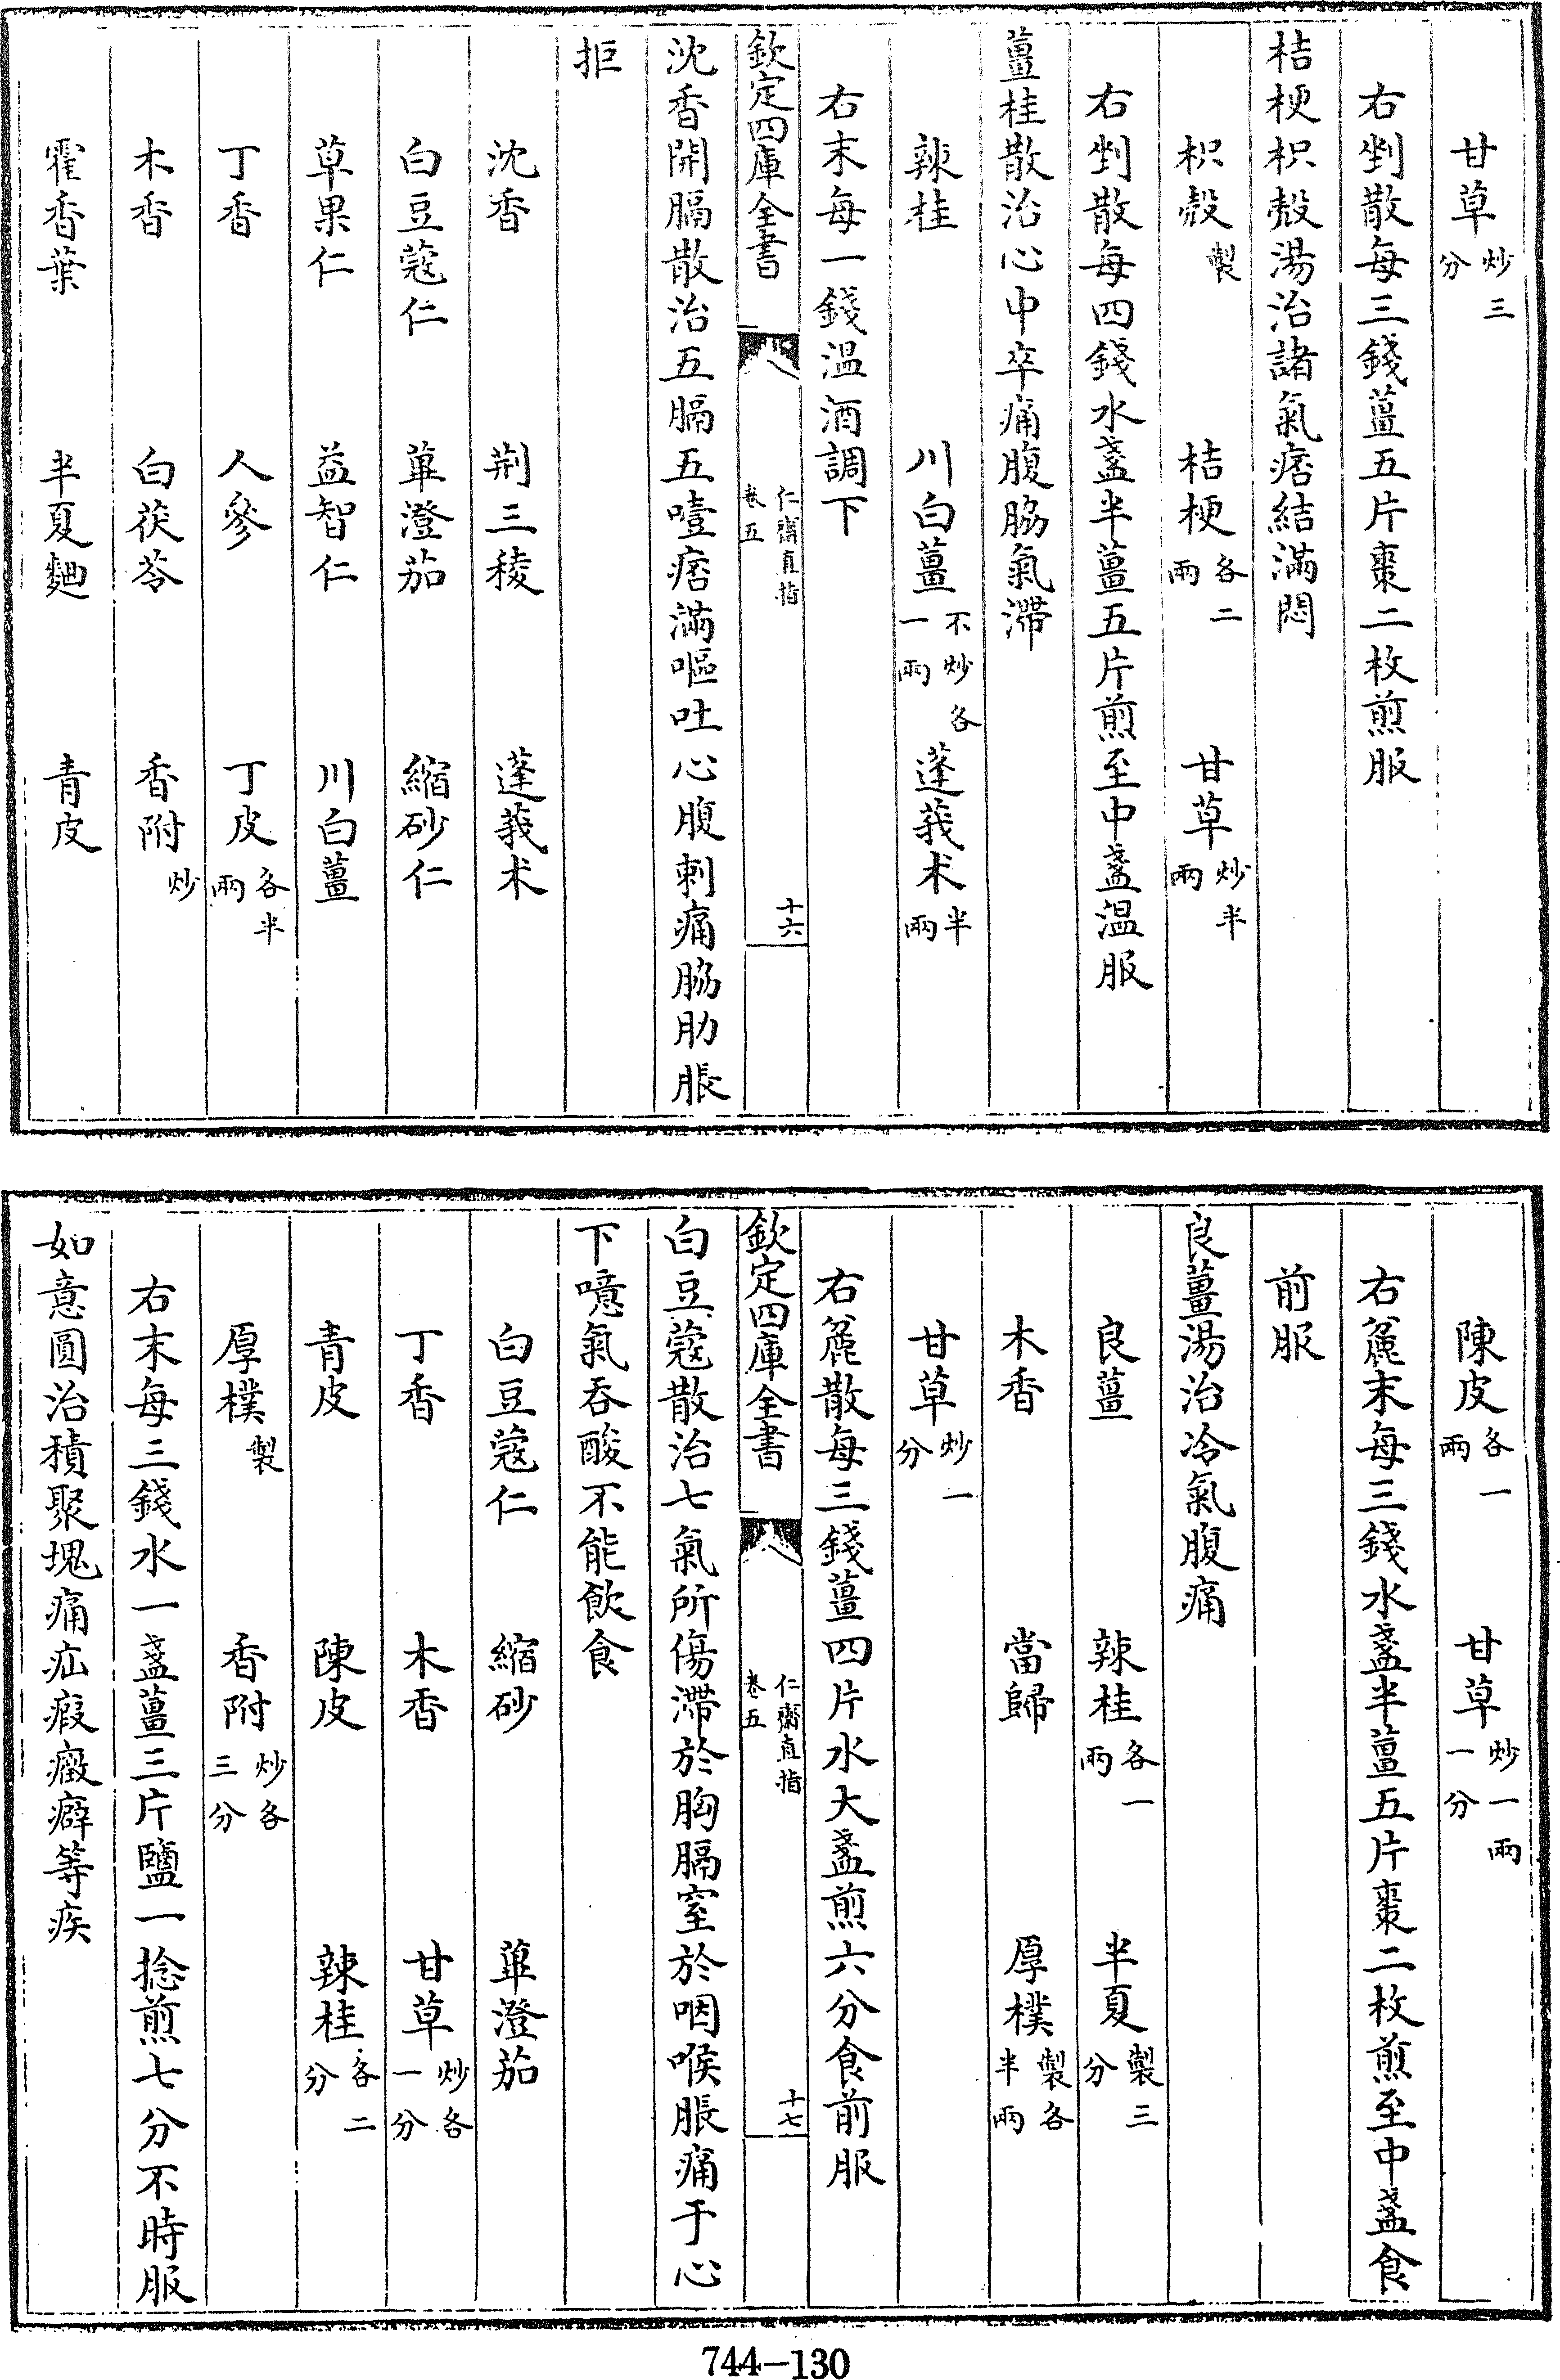 甘草炒三分
右剉散每三錢薑五片棗二枚煎服
桔梗枳殼湯治諸氣痞結滿悶
枳殼製　桔梗各二兩　甘草炒半兩
右剉散每四錢水盞半薑五片煎至中盞溫服
薑桂散治心中卒痛腹脇氣滯
辣桂　川白薑不炒各一兩　蓬莪朮半兩
右末每一錢溫酒調下
欽定四庫全書　仁齋直指卷五　十六
沈香開膈散治五膈五噎痞滿嘔吐心腹刺痛脇肋脹
拒
沈香　荆三稜　蓬莪朮
白豆蔻仁　蓽澄茄　縮砂仁
草果仁　益智仁　川白薑
丁香　人參　丁皮各半兩
木香　白茯苓　香附炒
霍香葉　半夏麯　青皮
陳皮各一兩　甘草炒一兩一分
右麄末每三錢水盞半薑五片棗二枚煎至中盞食
前服
良薑湯治冷氣腹痛
良薑　辣桂各一兩　半夏製三分
木香　當歸　厚樸製各半兩
甘草炒一分
右麄散每三錢薑四片水大盞煎六分食前服
欽定四庫全書　仁齋直指卷五　十七
白豆蔻散治七氣所傷滯於胸膈窒於咽喉脹痛于心
下噫氣吞酸不能飲食
白豆蔻仁　縮砂　蓽澄茄
丁香　木香　甘草炒各一分
青皮　陳皮　辣桂各二分
厚樸製　香附炒各三分
右末每三錢水一盞薑三片鹽一捻煎七分不時服
如意圓治積聚塊痛疝瘕癥癖等疾
744-130